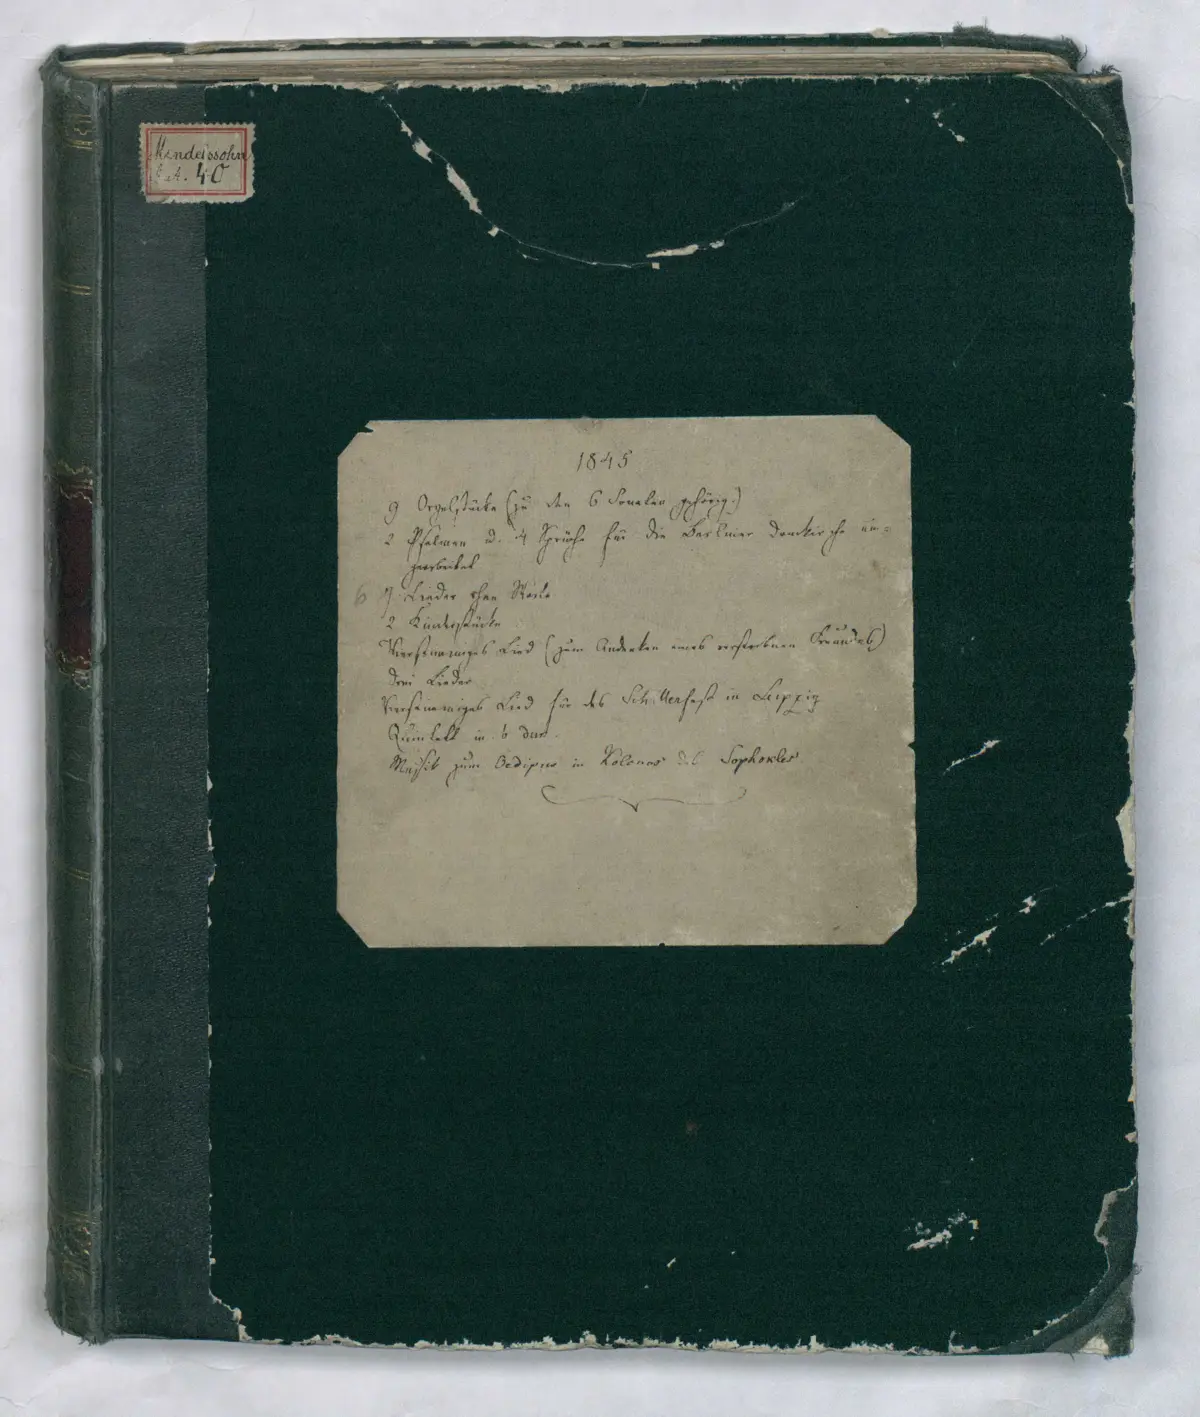 Mendelssohn
40
1845
9 Orgelstücke (zu den 6 Sonaten gehörig.)
2 Psalmen u. 4 Sprüche für die Berliner Domkirche
gearbeitet
6 7 Lieder ohne Worte
2 Kinderstücke
Vierstimmiges Lied (zum Andenken eines verstorbnen Freundes)
Drei Lieder
Vierstimmiges Lied für das Schillerfest in Leipzig
Quintett in b dur.
Musik zum Oedipus in Kolonos des Sophokles